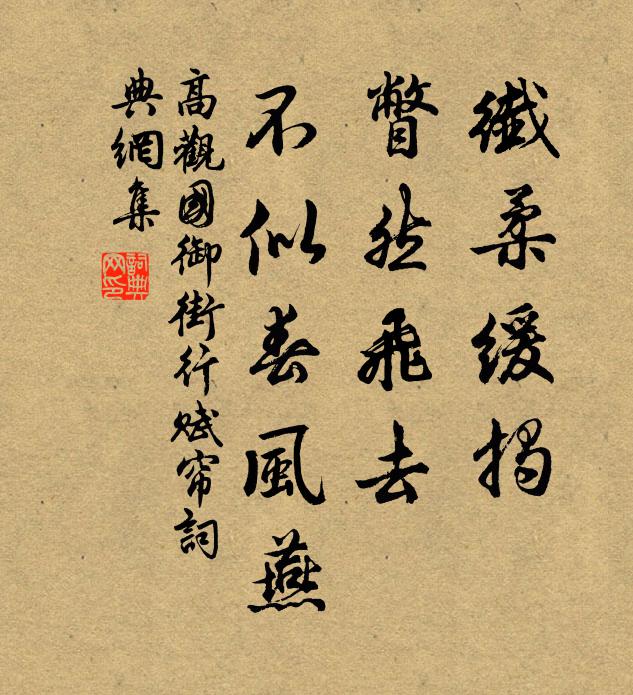 纖柔緩揭
瞥然飛去
不似春風燕
高觀國御街行賦帘詞
典網集
詞典
网印